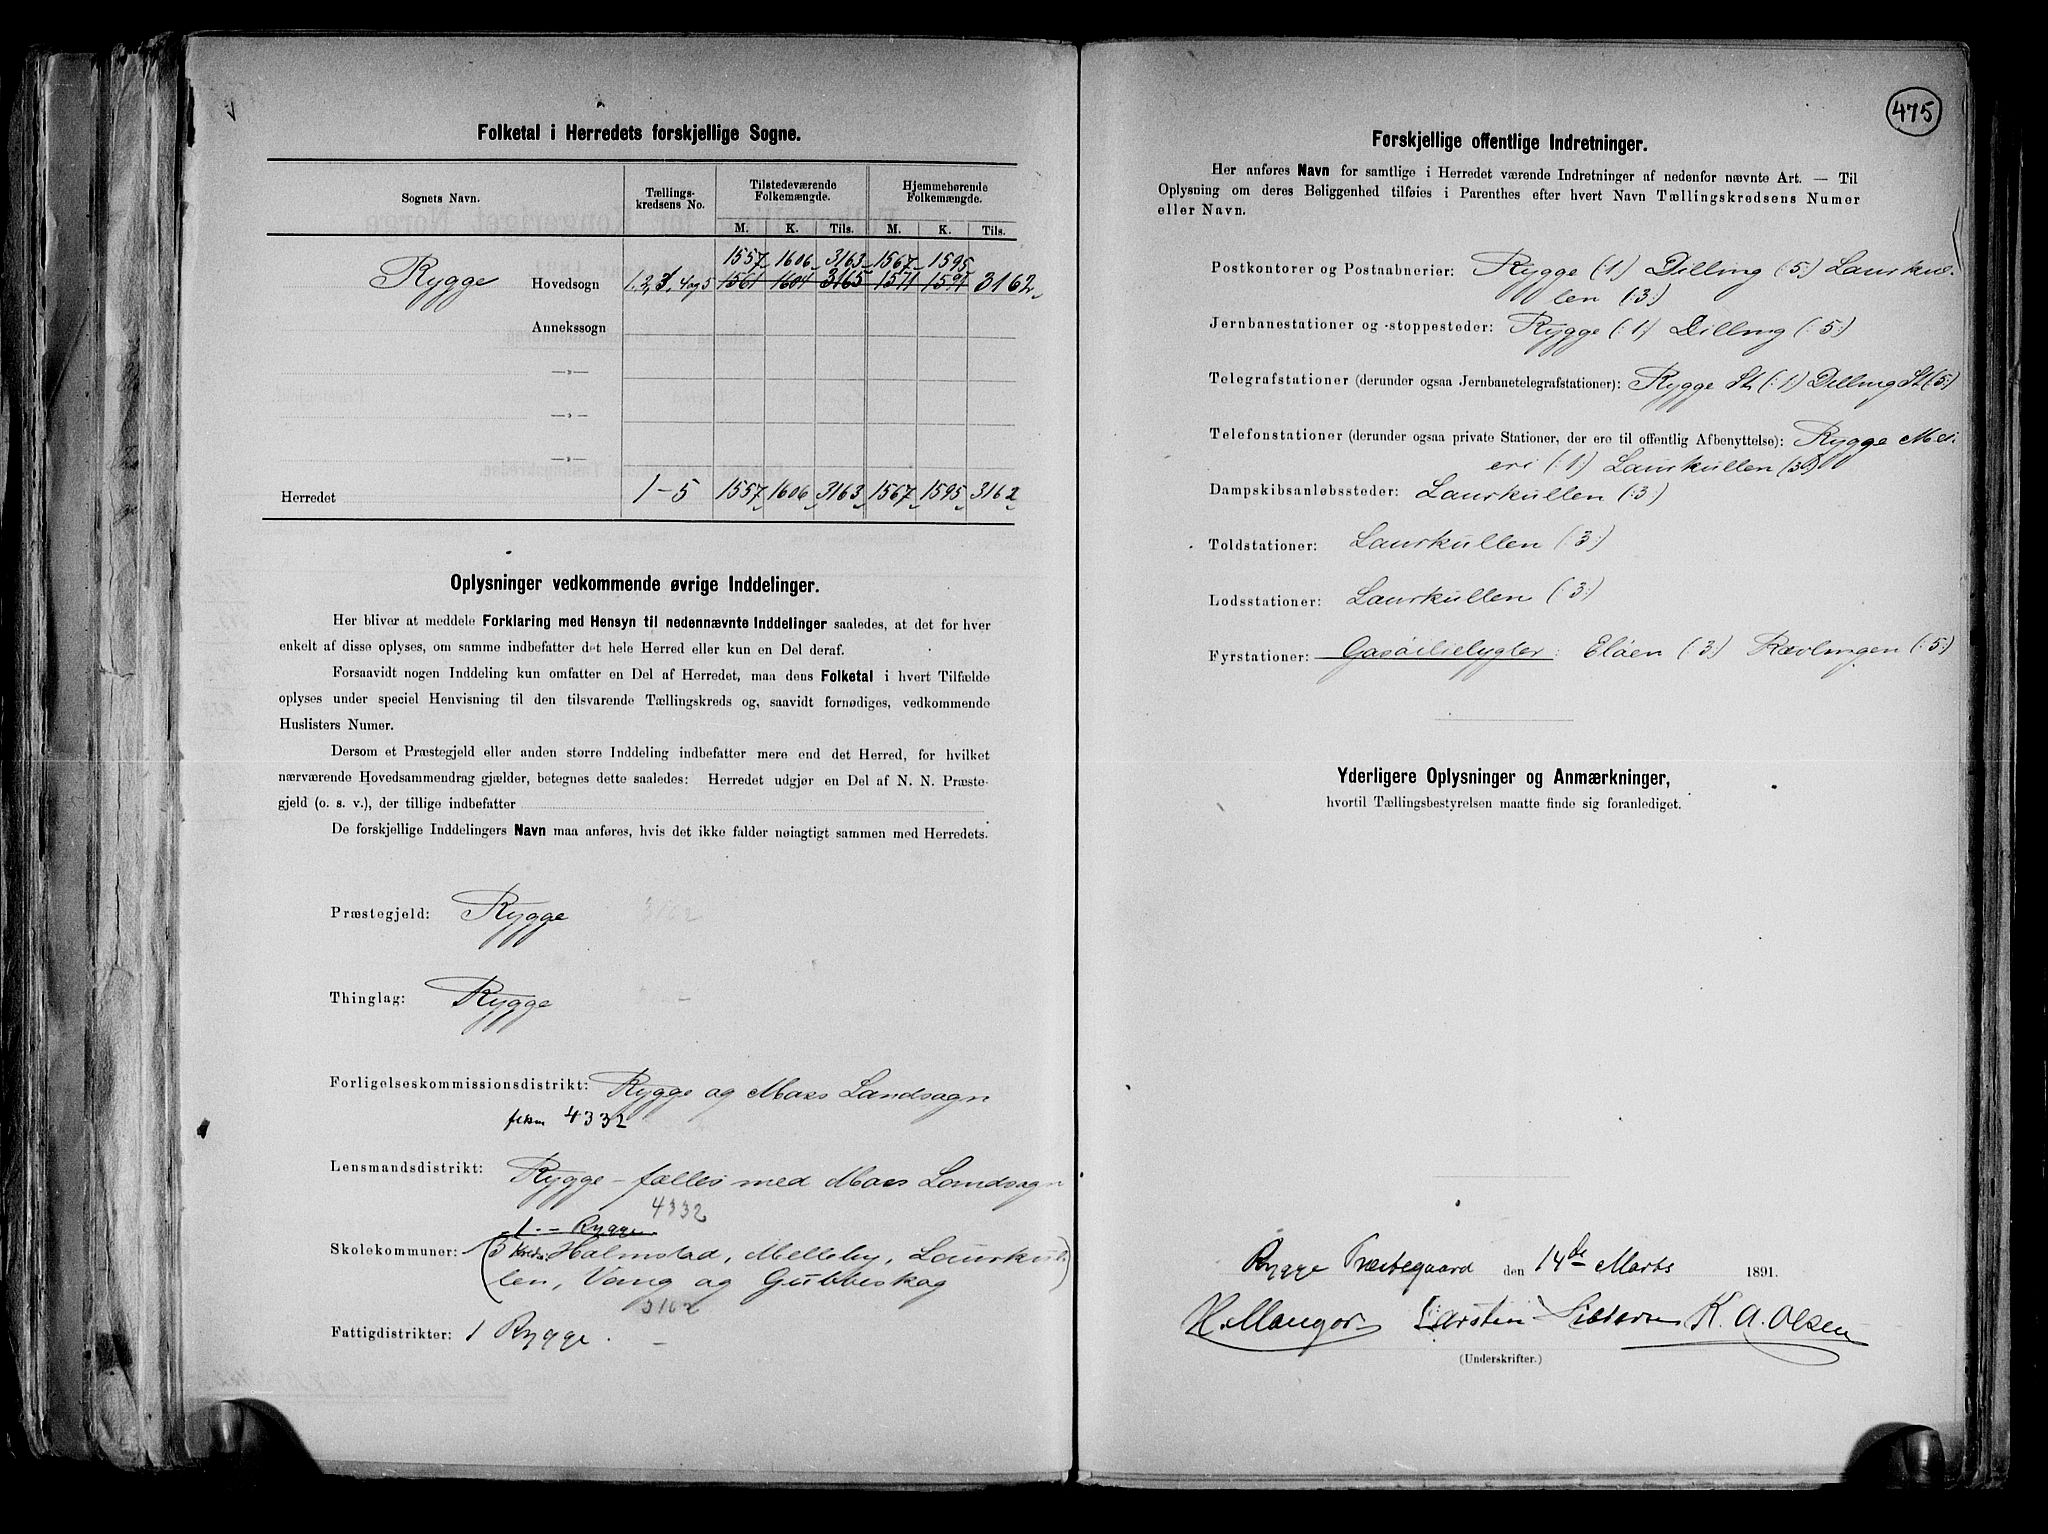 Folketal i Herredets forskjellige Sogne.
Sognets Navn. Tællings-kredsens No. Tilstedeværende Folkemængde. Hjemmehørende Folkemængde.
M. K. Tils. M. K. Tils.
1557 1606 3163 1567 1595
Rygge Hovedsogn 1, 2, 3, 4 og 5 1561 1604 3165 1571 1591 3162
Annekssogn
—„—
—„—
—„—
Herredet 1-5 1557 1606 3163 1567 1595 3162
Oplysninger vedkommende øvrige Inddelinger.
Her bliver at meddele Forklaring med Hensyn til nedennævnte Inddelinger saaledes, at det for hver
enkelt af disse oplyses, om samme indbefatter det hele Herred eller kun en Del deraf.
Forsaavidt nogen Inddeling kun omfatter en Del af Herredet, maa dens Folketal i hvert Tilfælde
oplyses under speciel Henvisning til den tilsvarende Tællingskreds og, saavidt fornødiges, vedkommende
Huslisters Numer.
Dersom et Præstegjeld eller anden større Inddeling indbefatter mere end det Herred, for hvilket
nærværende Hovedsammendrag gjælder, betegnes dette saaledes: Herredet udgjør en Del af N. N. Præste-
gjeld (o. s. v.), der tillige indbefatter
De forskjellige Inddelingers Navn maa anføres, hvis det ikke falder nøiagtigt sammen med Herredets.
Præstegjeld: Rygge 3162
Thinglag: Rygge
Forligelseskommissionsdistrikt: Rygge og Moss Landsogn
4332
Lensmandsdistrikt: Rygge – fælles med Moss Landsogn
4332
1 – Rygge
Skolekommuner: (5 Kredse Halmstad, Melleby, Laurkul-
len, Vang og Gubbeskog
3162
Fattigdistrikter: 1 Rygge.
475
Forskjellige offentlige Indretninger.
Her anføres Navn for samtlige i Herredet værende Indretninger af nedenfor nævnte Art. — Til
Oplysning om deres Beliggenhed tilføies i Parenthes efter hvert Navn Tællingskredsens Numer
eller Navn.
Postkontorer og Postaabnerier: Rygge (1) Dilling (5:) Laurkul-
len (:3:)
Jernbanestationer og -stoppesteder: Rygge (:1:) Dilling (:5:)
Telegrafstationer (derunder ogsaa Jernbanetelegrafstationer): Rygge St. (:1) Dilling St (5:)
Telefonstationer (derunder ogsaa private Stationer, der ere til offentlig Afbenyttelse): Rygge Mei-
eri (:1) Laurkullen (3)
Dampskibsanløbssteder: Laurkullen (:3:)
Toldstationer: Laurkullen (:3:)
Lodsstationer: Laurkullen (:3:)
Fyrstationer: Eløen (:3:) Rævlingen (:5:)
Yderligere Oplysninger og Anmærkninger,
hvortil Tællingsbestyrelsen maatte finde sig foranlediget.
Rygge Præstegaard den 14de Marts 1891.
K. A. Olsen
(Underskrifter.)